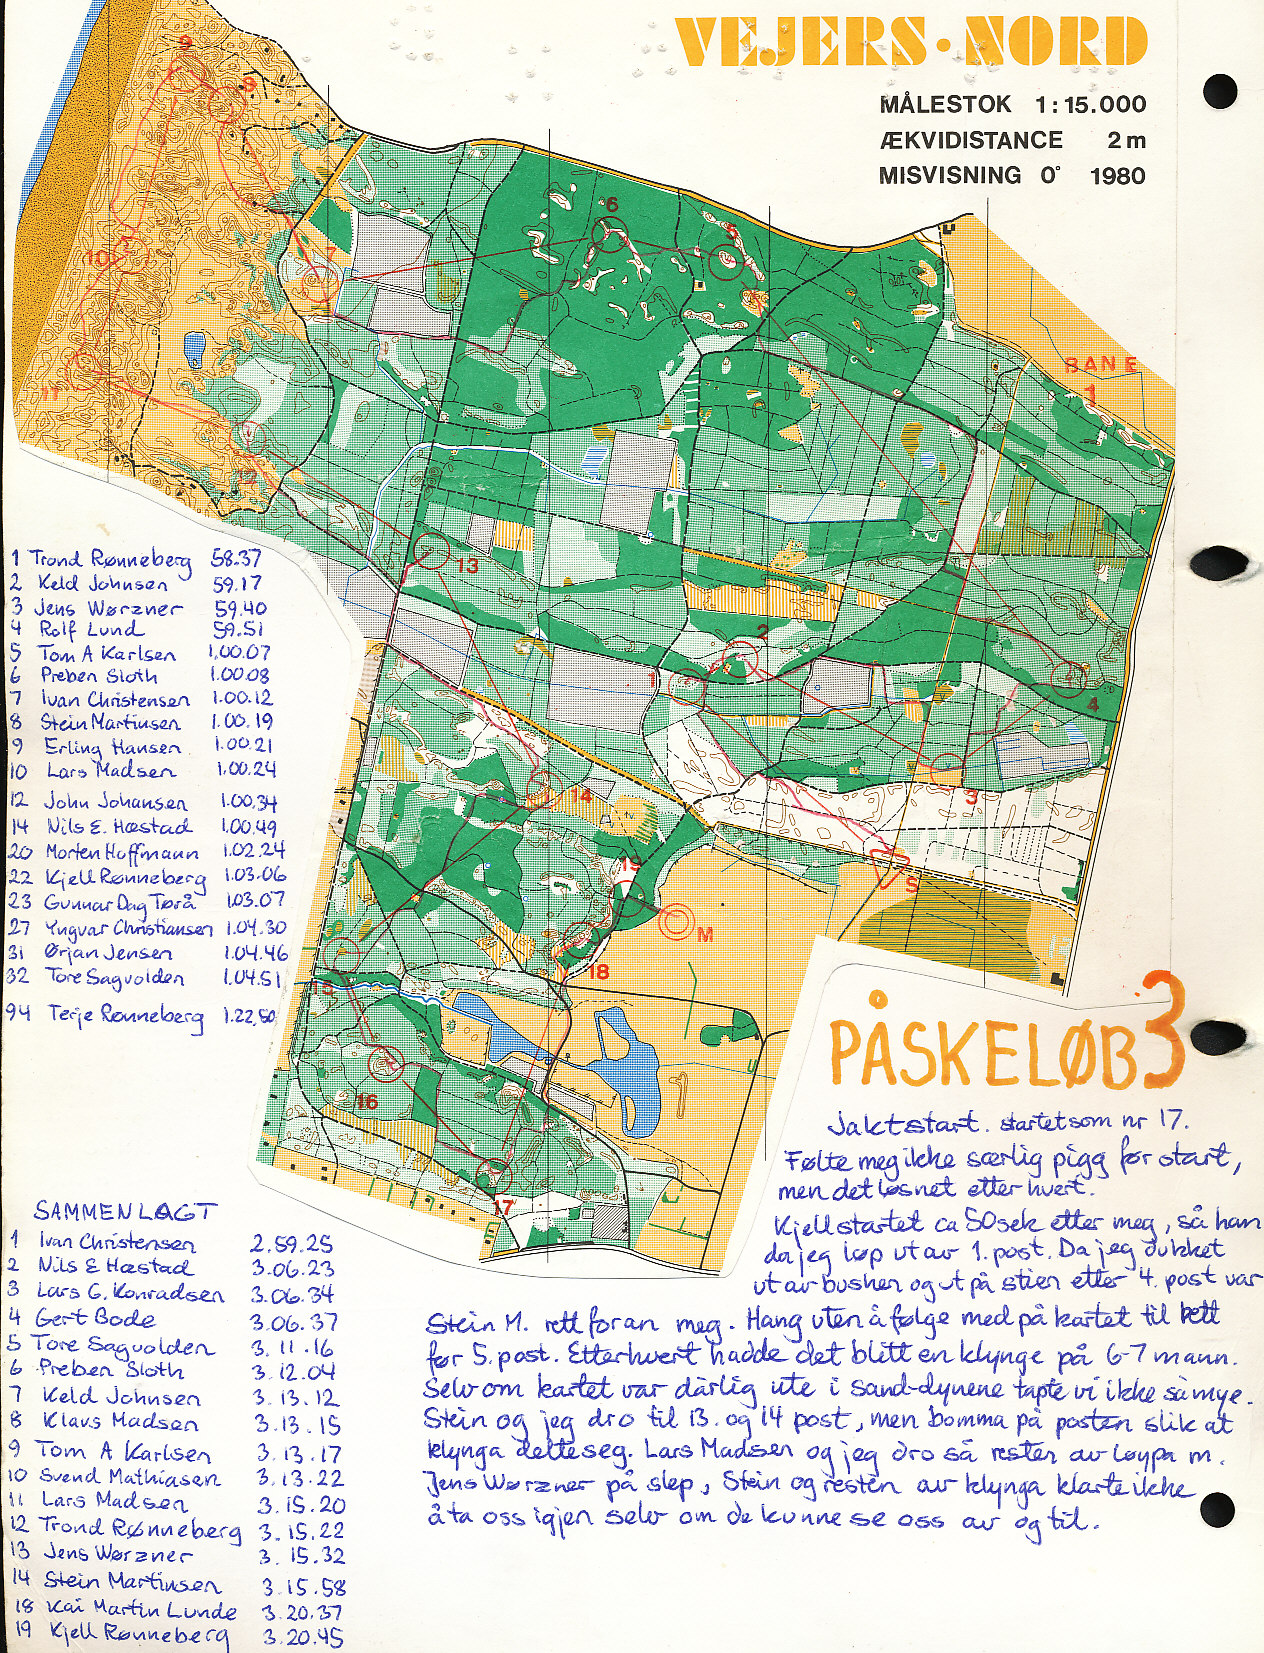 VEJERS·NORD
MÅLESTOK 1:15.000
ÆKVIDISTANCE 2m
MISVISNING 0° 1980
BANE
1
9
8
7
6
5
10
11
12
13
2
1
4
3
14
19
S
M
18
15
16
17
1 Trond Rønneberg 58.37
2 Keld Johnsen 59.17
3 Jens Wørzner 59.40
4 Rolf Lund 59.51
5 Tom A Karlsen 1.00.07
6 Preben Sloth 1.00.08
7 Ivan Christensen 1.00.12
8 Stein Martinsen 1.00.19
9 Erling Hansen 1.00.21
10 Lars Madsen 1.00.24
12 John Johansen 1.00.34
14 Nils E. Hæstad 1.00.49
20 Morten Hoffmann 1.02.24
22 Kjell Rønneberg 1.03.06
23 Gunnar Dag Tørå 1.03.07
27 Yngvar Christiansen 1.04.30
31 Ørjan Jensen 1.04.46
32 Tore Sagvolden 1.04.51
94 Terje Rønneberg 1.22.50
PÅSKELØB 3
Jaktstart. startet som nr 17.
Følte meg ikke særlig pigg før start,
men det løsnet etter hvert.
Kjell startet ca 50 sek etter meg, så han
da jeg løp ut av 1. post. Da jeg dukket
ut av bushen og ut på stien etter 4. post var
Stein M. rett foran meg. Hang uten å følge med på kartet til rett
før 5. post. Etterhvert hadde det blitt en klynge på 6-7 mann.
Selv om kartet var dårlig ute i sand-dynene tapte vi ikke så mye.
Stein og jeg dro til 13. og 14 post, men bomma på posten slik at
klynga delte seg. Lars Madsen og jeg dro så resten av løypa m.
Jens Wørzner på slep, Stein og resten av klynga klarte ikke
å ta oss igjen selv om de kunne se oss av og til.
SAMMENLAGT
1 Ivan Christensen 2.59.25
2 Nils E Hæstad 3.06.23
3 Lars G. Konradsen 3.06.34
4 Gert Bode 3.06.37
5 Tore Sagvolden 3.11.16
6 Preben Sloth 3.12.04
7 Keld Johnsen 3.13.12
8 Klaus Madsen 3.13.15
9 Tom A Karlsen 3.13.17
10 Svend Mathiasen 3.13.22
11 Lars Madsen 3.15.20
12 Trond Rønneberg 3.15.22
13 Jens Wørzner 3.15.32
14 Stein Martinsen 3.15.58
18 Kai Martin Lunde 3.20.37
19 Kjell Rønneberg 3.20.45